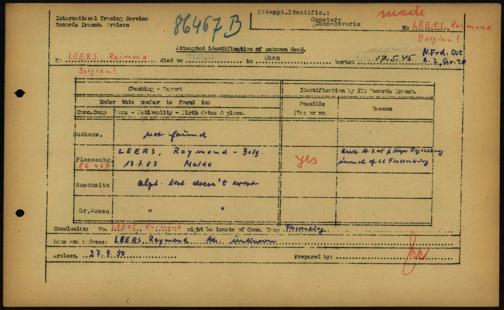 International Tracing Service
Records Branch Arolsen
86467 B
Attempt.Identific.:
made
Cemetery
Cham-Häveris
No LEERS, Raimond
Belgian!
Attempted identification of unknown dead.
N.Frd. Ost
A. 2, Gr. 20
No. LEERS, Raimond died on in Cham buried 17.5.45
Belgian!
Checking - Report
Identification by ITS Records Branch.
Under this number is found in:
Possible
(Yes or no)
Reason
Conc.Camp
Name - Nationality - Birth date & place.
Buchenw.
not found
Flossenbg.
86 467
LEERS, Raymond - Belg.
13.7.03 Halde
yes
inmate of CC Flossenbürg
Auschwitz
Alph. list doesn't exist
Gr.Rosen.
" "
Conclusion: No. LEERS, Raimond might be inmate of Conc. Camp Flossenbürg
Name and address: LEERS, Raymond Ad. unknown
Arolsen, 27.9.50
Prepared by: